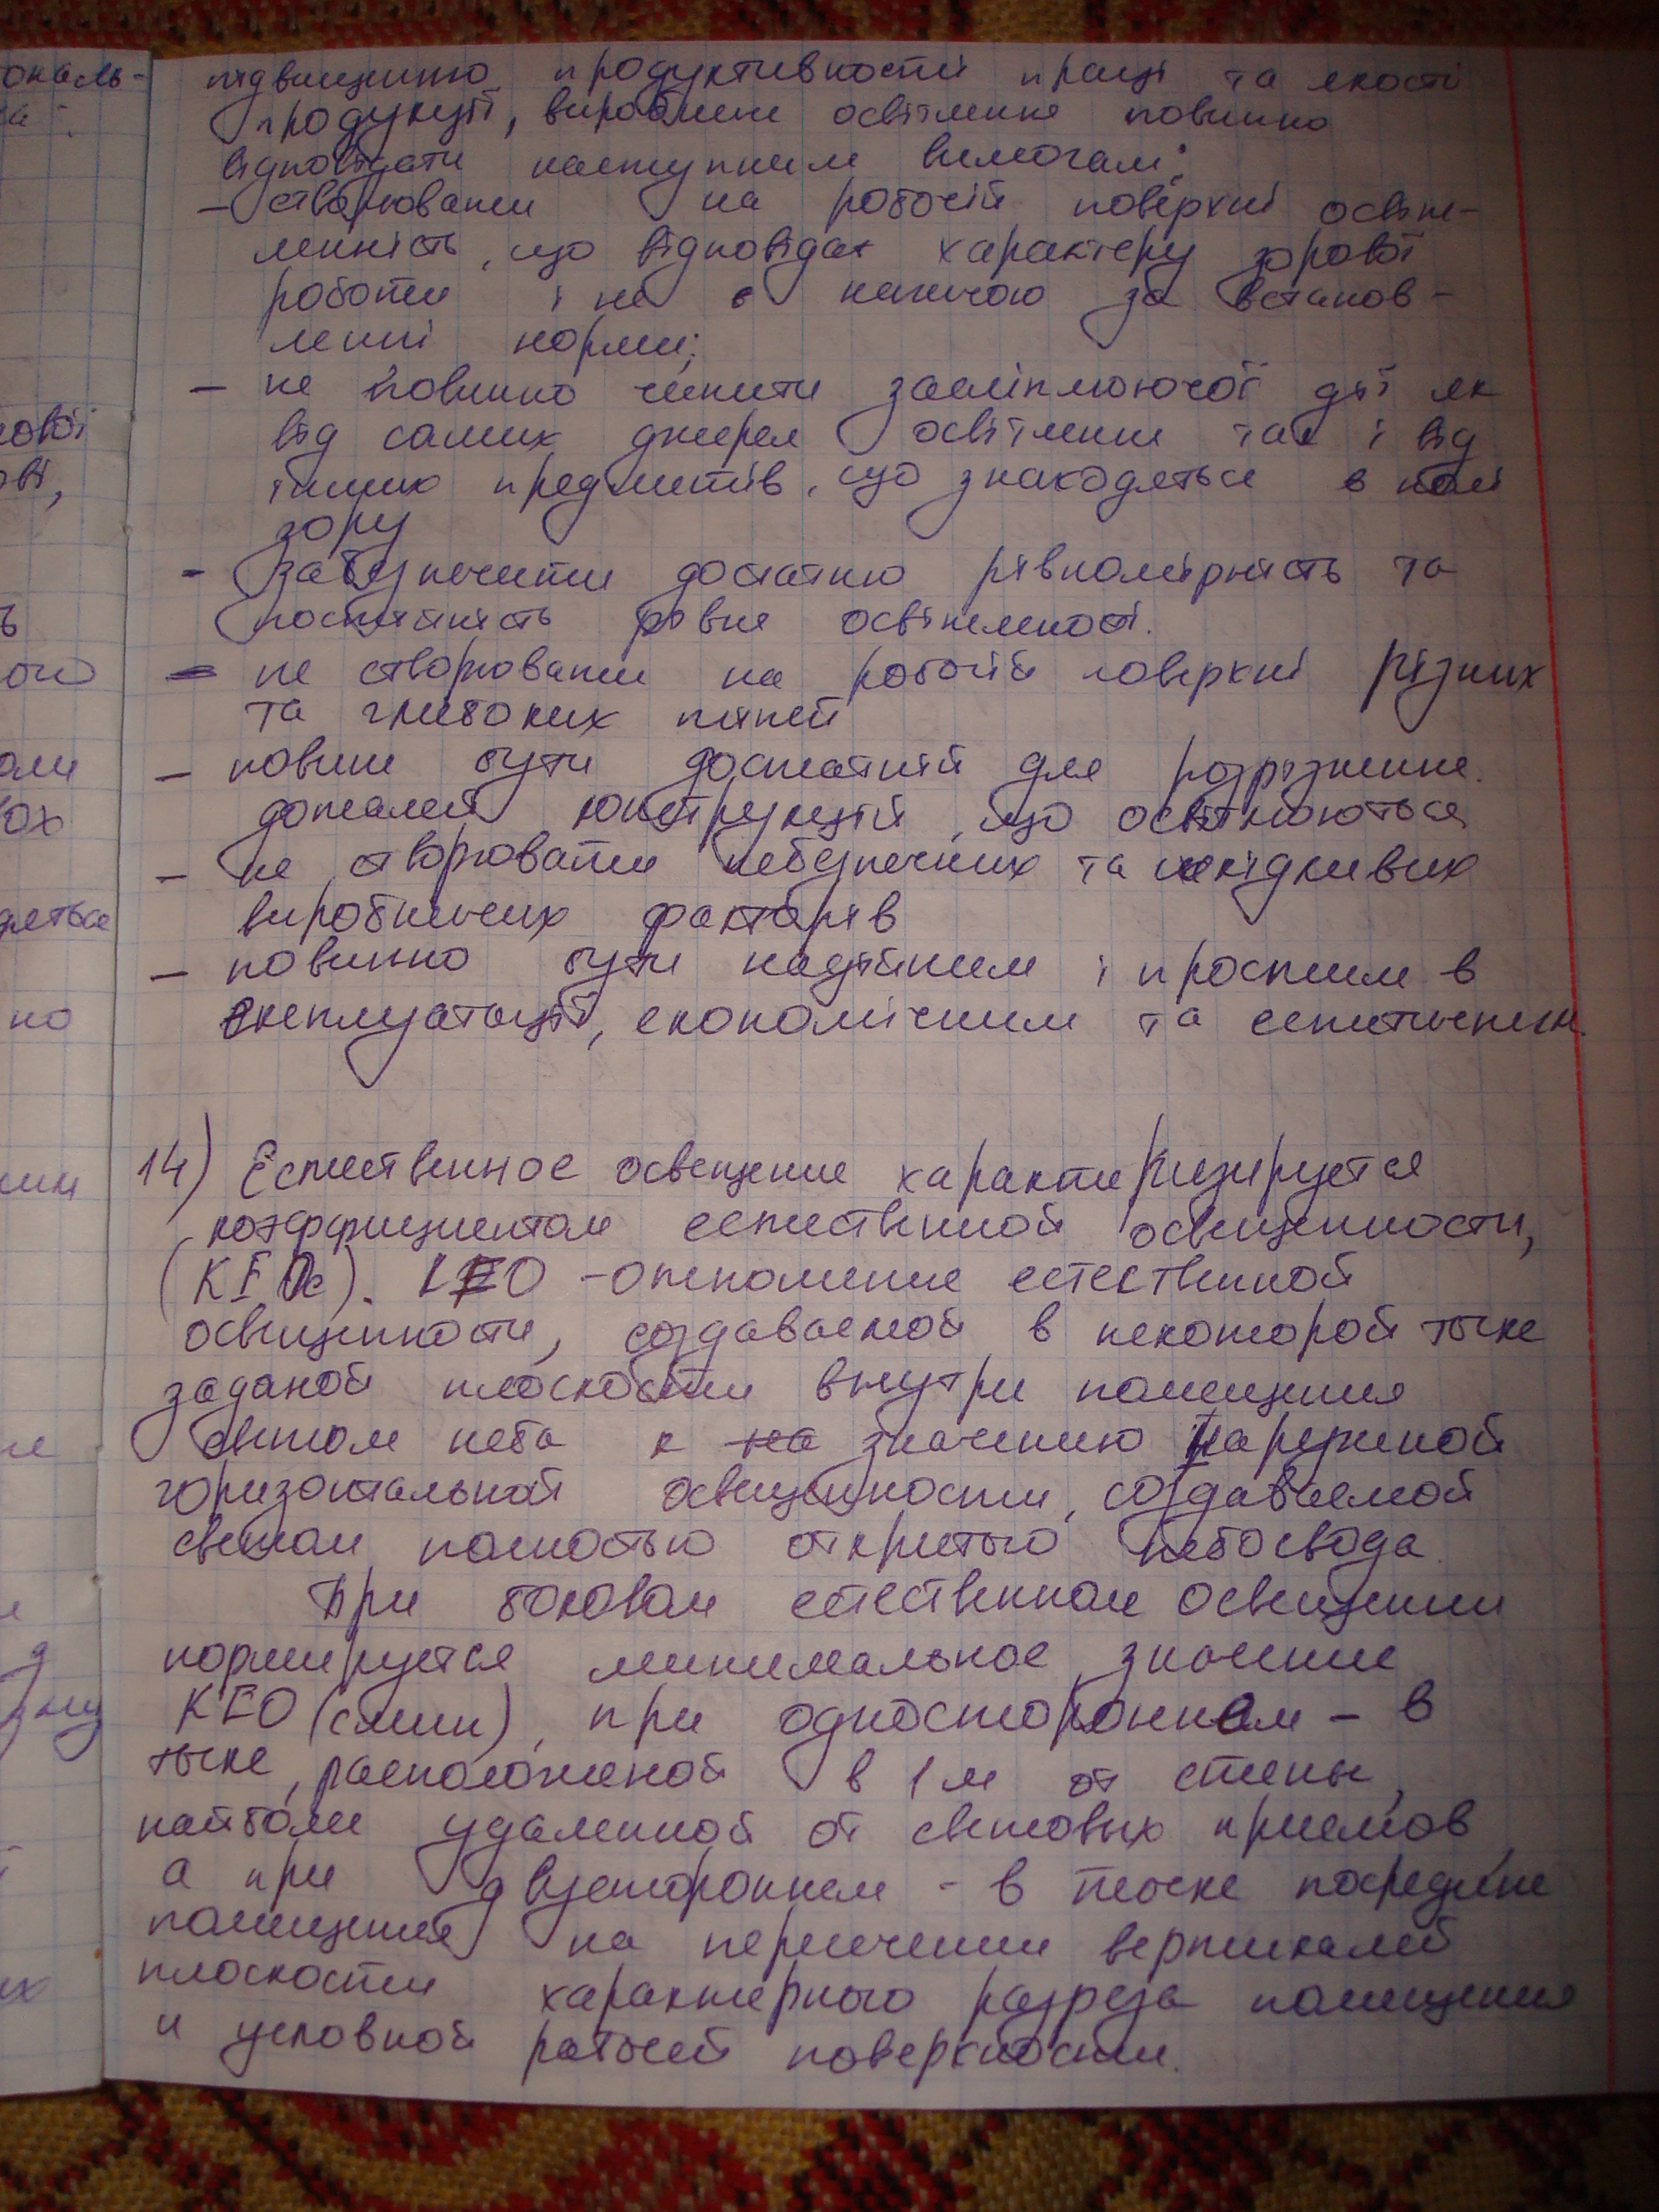 підвищенню продуктивності праці та якості
продукції, виробниче освітлення повинно
відповідати наступним вимогам:
– створювати на робочій поверхні освіт-
ленність, що відповідає характеру зорової
роботи і не є нижчою за встанов-
ленні норми;
– не повинно чинити засліплюючої дії як
від самих джерел освітлення так і від
інших предметів, що знаходяться в полі
зору
– забезпечити достатню рівномірність та
постійність рівня освітленості.
– не створювати на робочій поверхні різких
та глибоких тіней
– повинне бути достатній для розрізнення
деталей конструкцій, що освітлюються
– не створювати небезпечних та шкідливих
виробничих факторів
– повинно бути надійним і простим в
експлуатації, економічним та естетичним.
14) Естественное освещение характеризируется
коэффициентом естественной освещенности,
(КЕО). КЕО – отношение естественной
освещенности, создаваемой в некоторой точке
заданой плоскости внутри помещения
светом неба к на значению наружной
горизонтальной освещенности, создаваемой
светом полностью открытого небосвода.
При боковом естественном освещении
нормируется минимальное значение
КЕО (емин), при одностороннем – в
точке, расположеной в 1 м от стены,
наиболе удаленной от световых приемов,
а при двустороннем – в точке посредине
помещения на пересечении вертикалей
плоскости характерного разреза помещения
и условной рабочей поверхности.
ональ-
а
ової
ові,
ь
ого
али
ох
дяться
но
ним